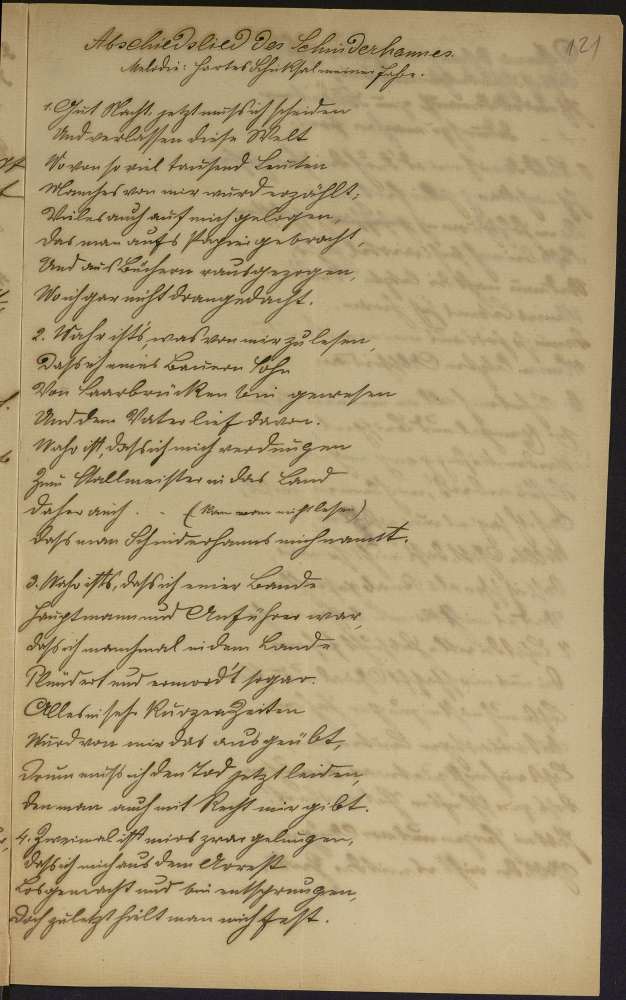 121
Abschiedslied des Schinderhannes.
Melodie: Hartes Schicksal meiner Jahre.
1. Gut Nacht, jetzt muss ich scheiden
Und verlassen diese Welt
Wo von so viel tausend Leuten
Manches von mir wurd erzählt;
Vieles auch auf mich gelogen,
Das man aufs Papier gebracht,
Und aus Büchern rausgezogen,
Wo ich gar nicht drangedacht.
2. Wahr ist's, was von mir zu lesen,
Dass ich eines Bauern Sohn
Von Saarbrücken bin gewesen
Und dem Vater lief davon.
Wahr ist, dass ich mich verdungen
Zum Stallmeister in das Land
Daher auch . . (kann man nicht lesen)
Dass man Schinderhanns mich nannt.
3. Wahr ist's, dass ich einer Bande
Hauptmann und Anführer war,
Dass ich manchmal in dem Lande
Plündert und ermord't sogar.
Alles in sehr kurzen Zeiten
Wurd von mir das ausgeübt,
Drum muss ich den Tod jetzt leiden,
Den man auch mit Recht mir gibt.
4. Zweimal ist mirs zwar gelungen,
Dass ich mich aus dem Arrest
Losgemacht und bin entsprungen,
Doch zuletzt hielt man mich fest.